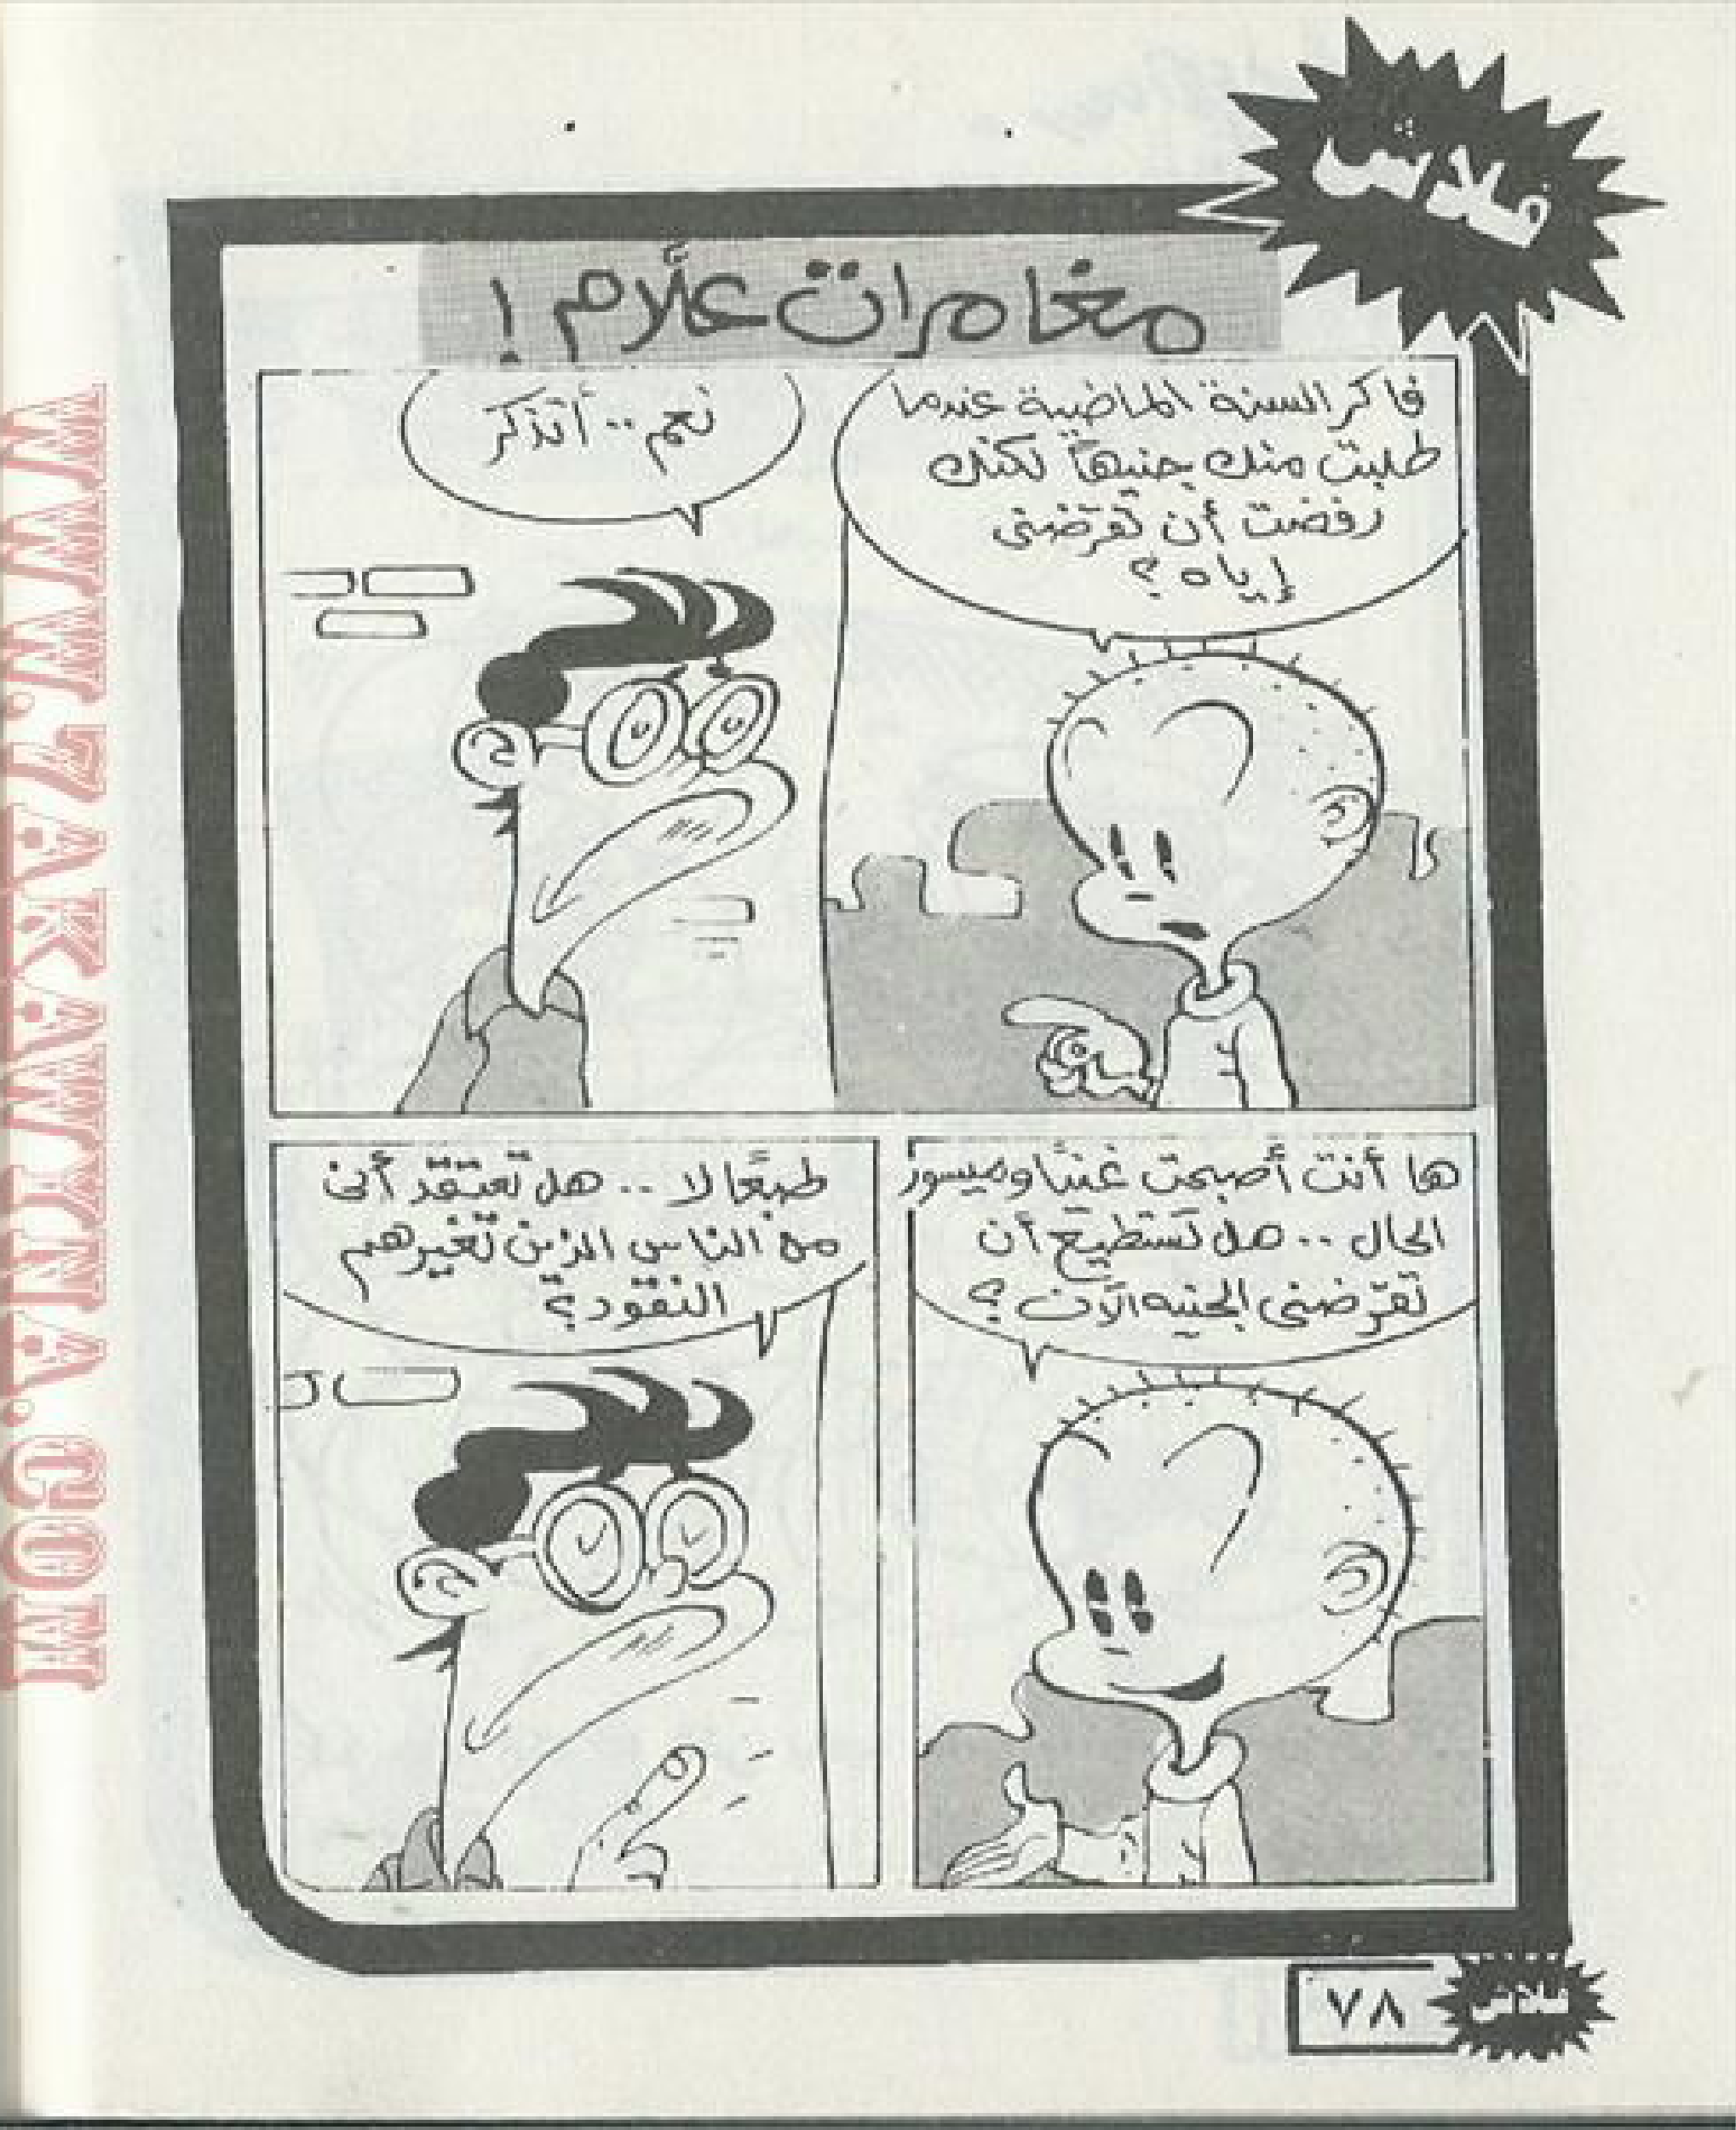 فلاش
مغامرات علَّام !
فاكر السنة الماضية عندما
طلبت منك جنيهاً لكنك
رفضت أن تقرضنى
إياه ؟
نعم .. أتذكر
ها أنت أصبحت غنيًا وميسور
الحال .. هل تستطيع أن
تقرضنى الجنيه الآن ؟
طبعًا لا .. هل تعتقد أنى
من الناس الذين تغيرهم
النقود ؟
٧٨
فلاش
WWW.7AKAWINA.COM